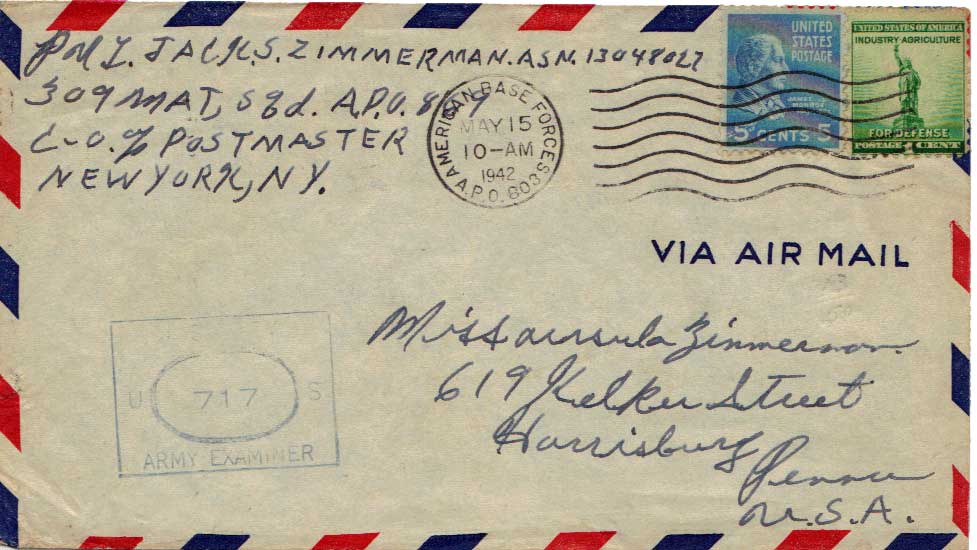 PVT. JACK S. ZIMMERMAN. ASN. 13048027
309 MAT, Sqd. A.P.O.
C-O. % POSTMASTER
NEW YORK, NY.
AMERICAN BASE FORCES
MAY 15
10-AM
1942
A.P.O. 803
UNITED STATES POSTAGE
JAMES MONROE
5 CENTS 5
UNITED STATES OF AMERICA
INDUSTRY AGRICULTURE
FOR DEFENSE
POSTAGE 1 CENT
VIA AIR MAIL
Miss Zimmerman
619 Kelker Street
Harrisburg
Penna
U.S.A.
U 717 S
ARMY EXAMINER